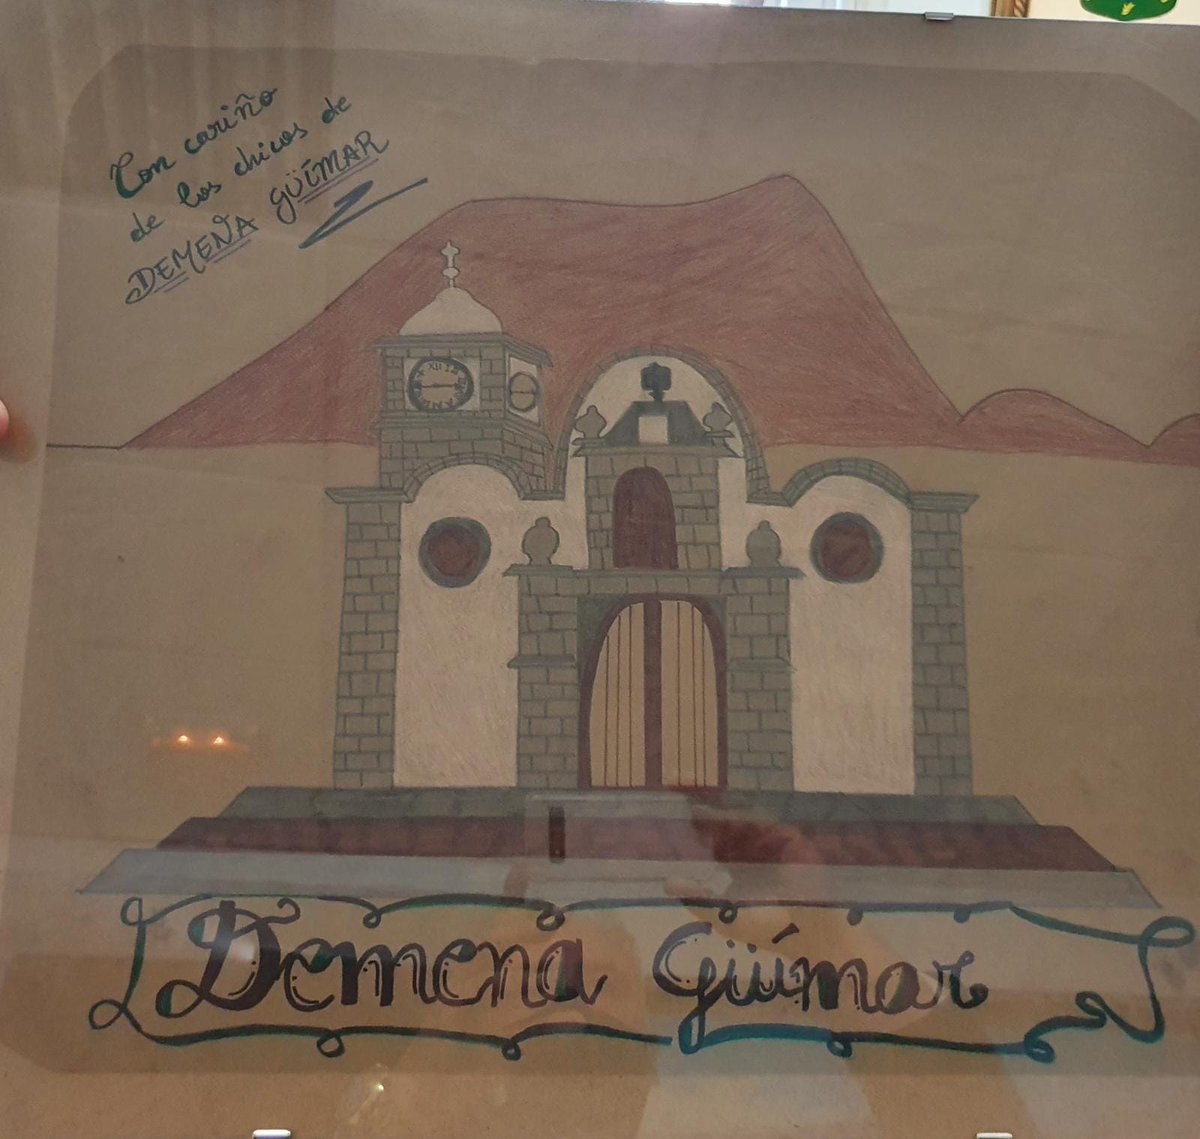 Con cariño
de los chicos de
DEMENA GÜÍMAR
XII
Demena Güímar